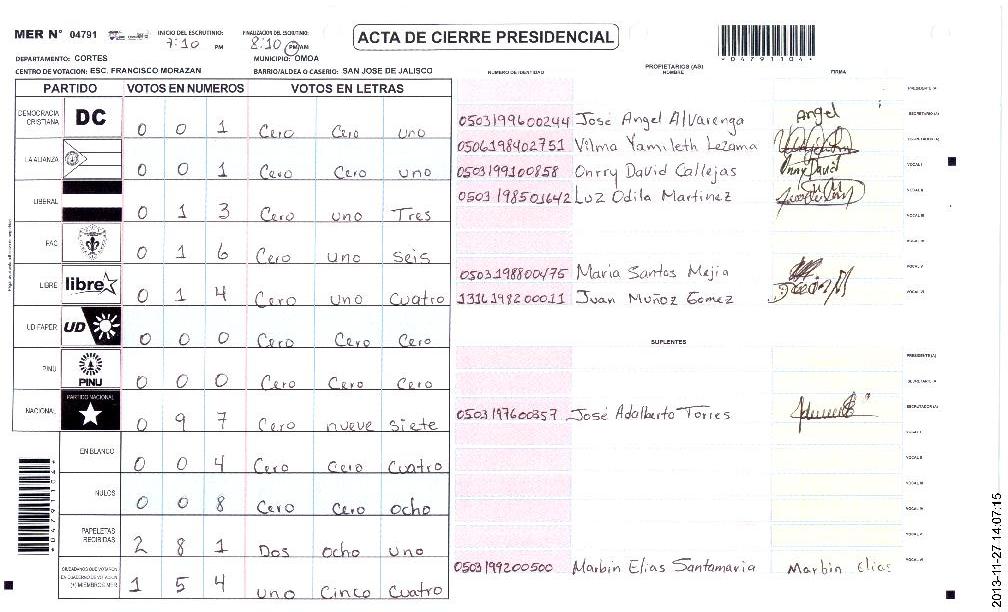 MER N° 04791
INICIO DEL ESCRUTINIO: 7:10 PM
FINALIZACION DEL ESCRUTINIO: 8:10 PM AM
ACTA DE CIERRE PRESIDENCIAL
*04791104*
DEPARTAMENTO: CORTES
MUNICIPIO: OMOA
CENTRO DE VOTACION: ESC. FRANCISCO MORAZAN
BARRIO/ALDEA O CASERIO: SAN JOSE DE JALISCO
PARTIDO VOTOS EN NUMEROS VOTOS EN LETRAS
DEMOCRACIA CRISTIANA DC 0 0 1 Cero Cero uno
LA ALIANZA 0 0 1 Cero Cero uno
LIBERAL 0 1 3 Cero uno Tres
PAC 0 1 6 Cero uno Seis
LIBRE libre 0 1 4 Cero uno Cuatro
UD FAPER UD 0 0 0 Cero Cero Cero
PINU PINU 0 0 0 Cero Cero Cero
NACIONAL PARTIDO NACIONAL 0 9 7 Cero nueve siete
EN BLANCO 0 0 4 Cero Cero Cuatro
NULOS 0 0 8 Cero Cero ocho
PAPELETAS RECIBIDAS 2 8 1 Dos ocho uno
CIUDADANOS QUE VOTARON EN CUADERNO DE VOTACION (+) MIEMBROS MER 1 5 4 uno Cinco Cuatro
PROPIETARIOS (AS)
NUMERO DE IDENTIDAD NOMBRE FIRMA
PRESIDENTE (A)
0503199600244 José Angel Alvarenga Angel SECRETARIO (A)
0506198402751 Vilma Yamileth Lezama ESCRUTADOR (A)
0503199100858 Onrry David Callejas Onrry David VOCAL I
0503198501642 Luz Odila Martinez VOCAL II
VOCAL III
VOCAL IV
0503198800475 Maria Santos Mejia VOCAL V
1316198200011 Juan Muñoz Gomez VOCAL VI
SUPLENTES
PRESIDENTE (A)
SECRETARIO (A)
0503197600357 José Adalberto Torres ESCRUTADOR (A)
VOCAL I
VOCAL II
VOCAL III
VOCAL IV
VOCAL V
0503199200500 Marbin Elias Santamaria Marbin Elias VOCAL VI
*04791104*
2013-11-27 14:07:15